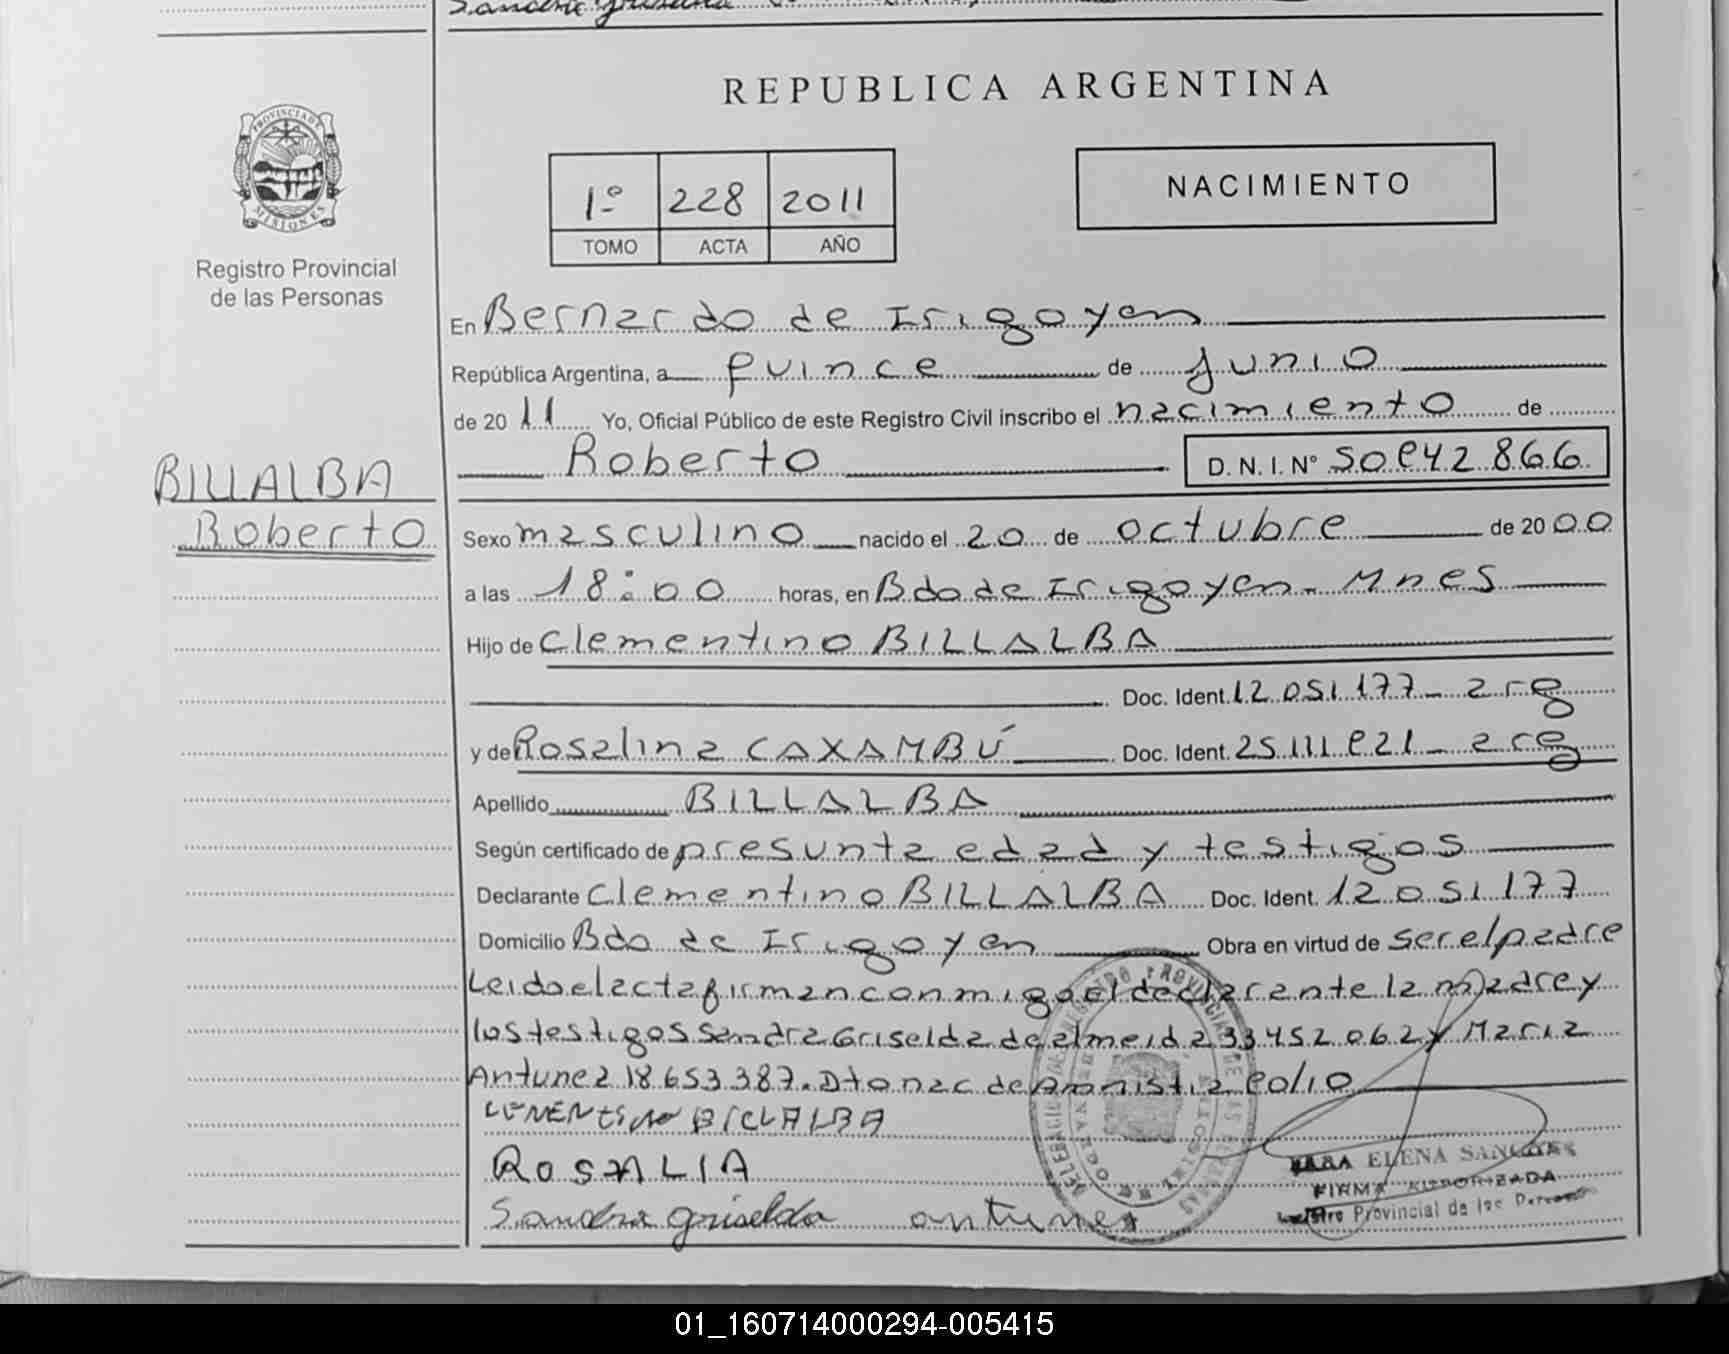 Sandra Griselda
REPUBLICA ARGENTINA
PROVINCIA DE MISIONES
Registro Provincial
de las Personas
1º 228 2011
TOMO ACTA AÑO
NACIMIENTO
En Bernardo de Irigoyen
República Argentina, a quince de Junio
de 2011 Yo, Oficial Público de este Registro Civil inscribo el nacimiento de
Roberto D.N.I. Nº 50.842.866
BILLALBA
Roberto
Sexo masculino nacido el 20 de octubre de 2000
a las 18:00 horas, en Bdo de Irigoyen. Mnes
Hijo de Clementino BILLALBA
Doc. Ident. 12.051.177 - arg
y de Rosalina CAXAMBÚ Doc. Ident. 25.111.821 - arg
Apellido BILLALBA
Según certificado de presunta edad y testigos
Declarante Clementino BILLALBA Doc. Ident. 12.051.177
Domicilio Bdo de Irigoyen Obra en virtud de ser el padre
Leido el acta firman conmigo el declarante la madre y
los testigos Sandra Griselda de almeida 33.452.062 y Maria
Antunez 18.653.387. Dto nac de Amnistia
BILLALBA
ROSALIA
Sandra griselda antunes
ELENA
FIRMA AUTORIZADA
Registro Provincial de las Personas
01_160714000294-005415